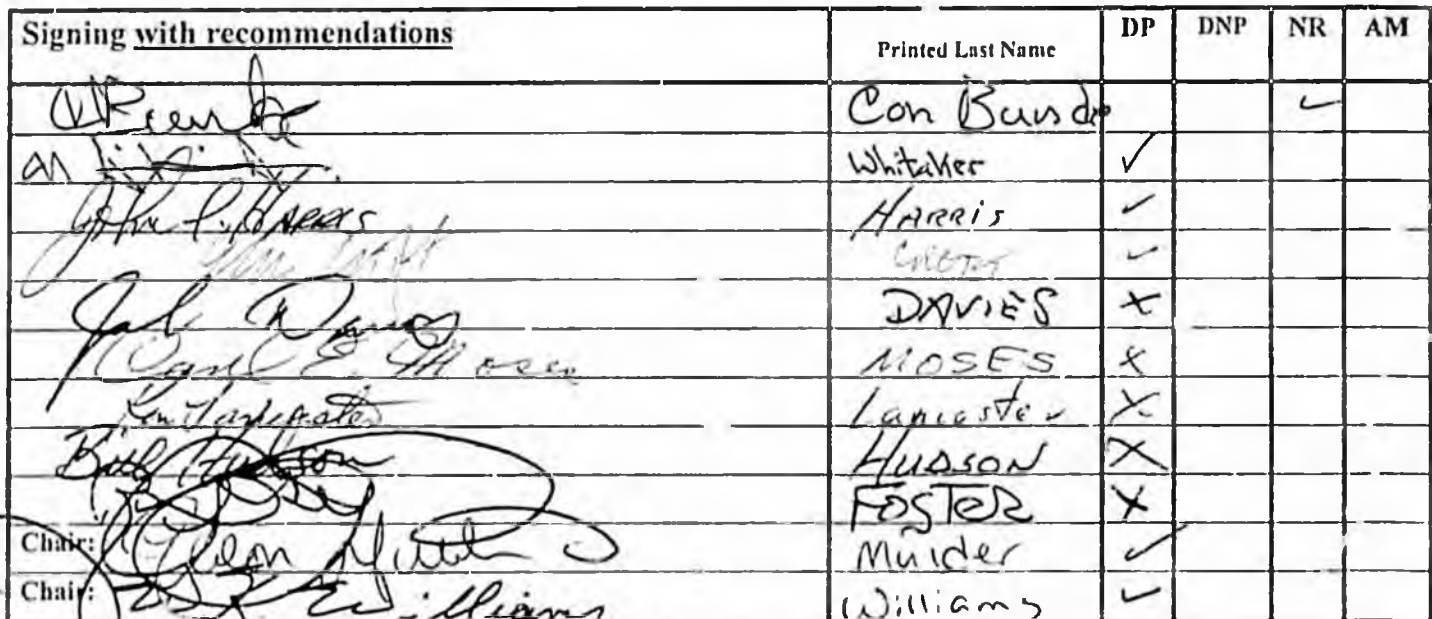 Signing with recommendations Printed Last Name DP DNP NR AM
Con Bunde ✓
Whitaker ✓
John L. HARRIS HARRIS ✓
✓
DAVIES X
Carl E. Moses MOSES X
Lancaster X
Bill Hudson HUDSON X
FOSTER X
Chair: Mulder ✓
Chair: Williams Williams ✓